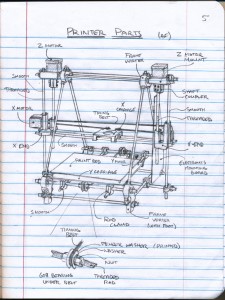 5
PRINTER PARTS
Z MOTOR
FRONT VERTEX
Z MOTOR MOUNT
SMOOTH
THREADED
X MOTOR
X CARRIAGE
TIMING BELT
SHAFT COUPLER
SMOOTH
THREADED
X-END
SMOOTH
X-END
PRINT BED
Y MOTOR
Y CARRIAGE
SMOOTH
ROD CLAMP
FRAME VERTEX (WITH FOOT)
TIMING BELT
FENDER WASHER
WASHER
NUT
608 BEARING UNDER BELT
THREADED ROD